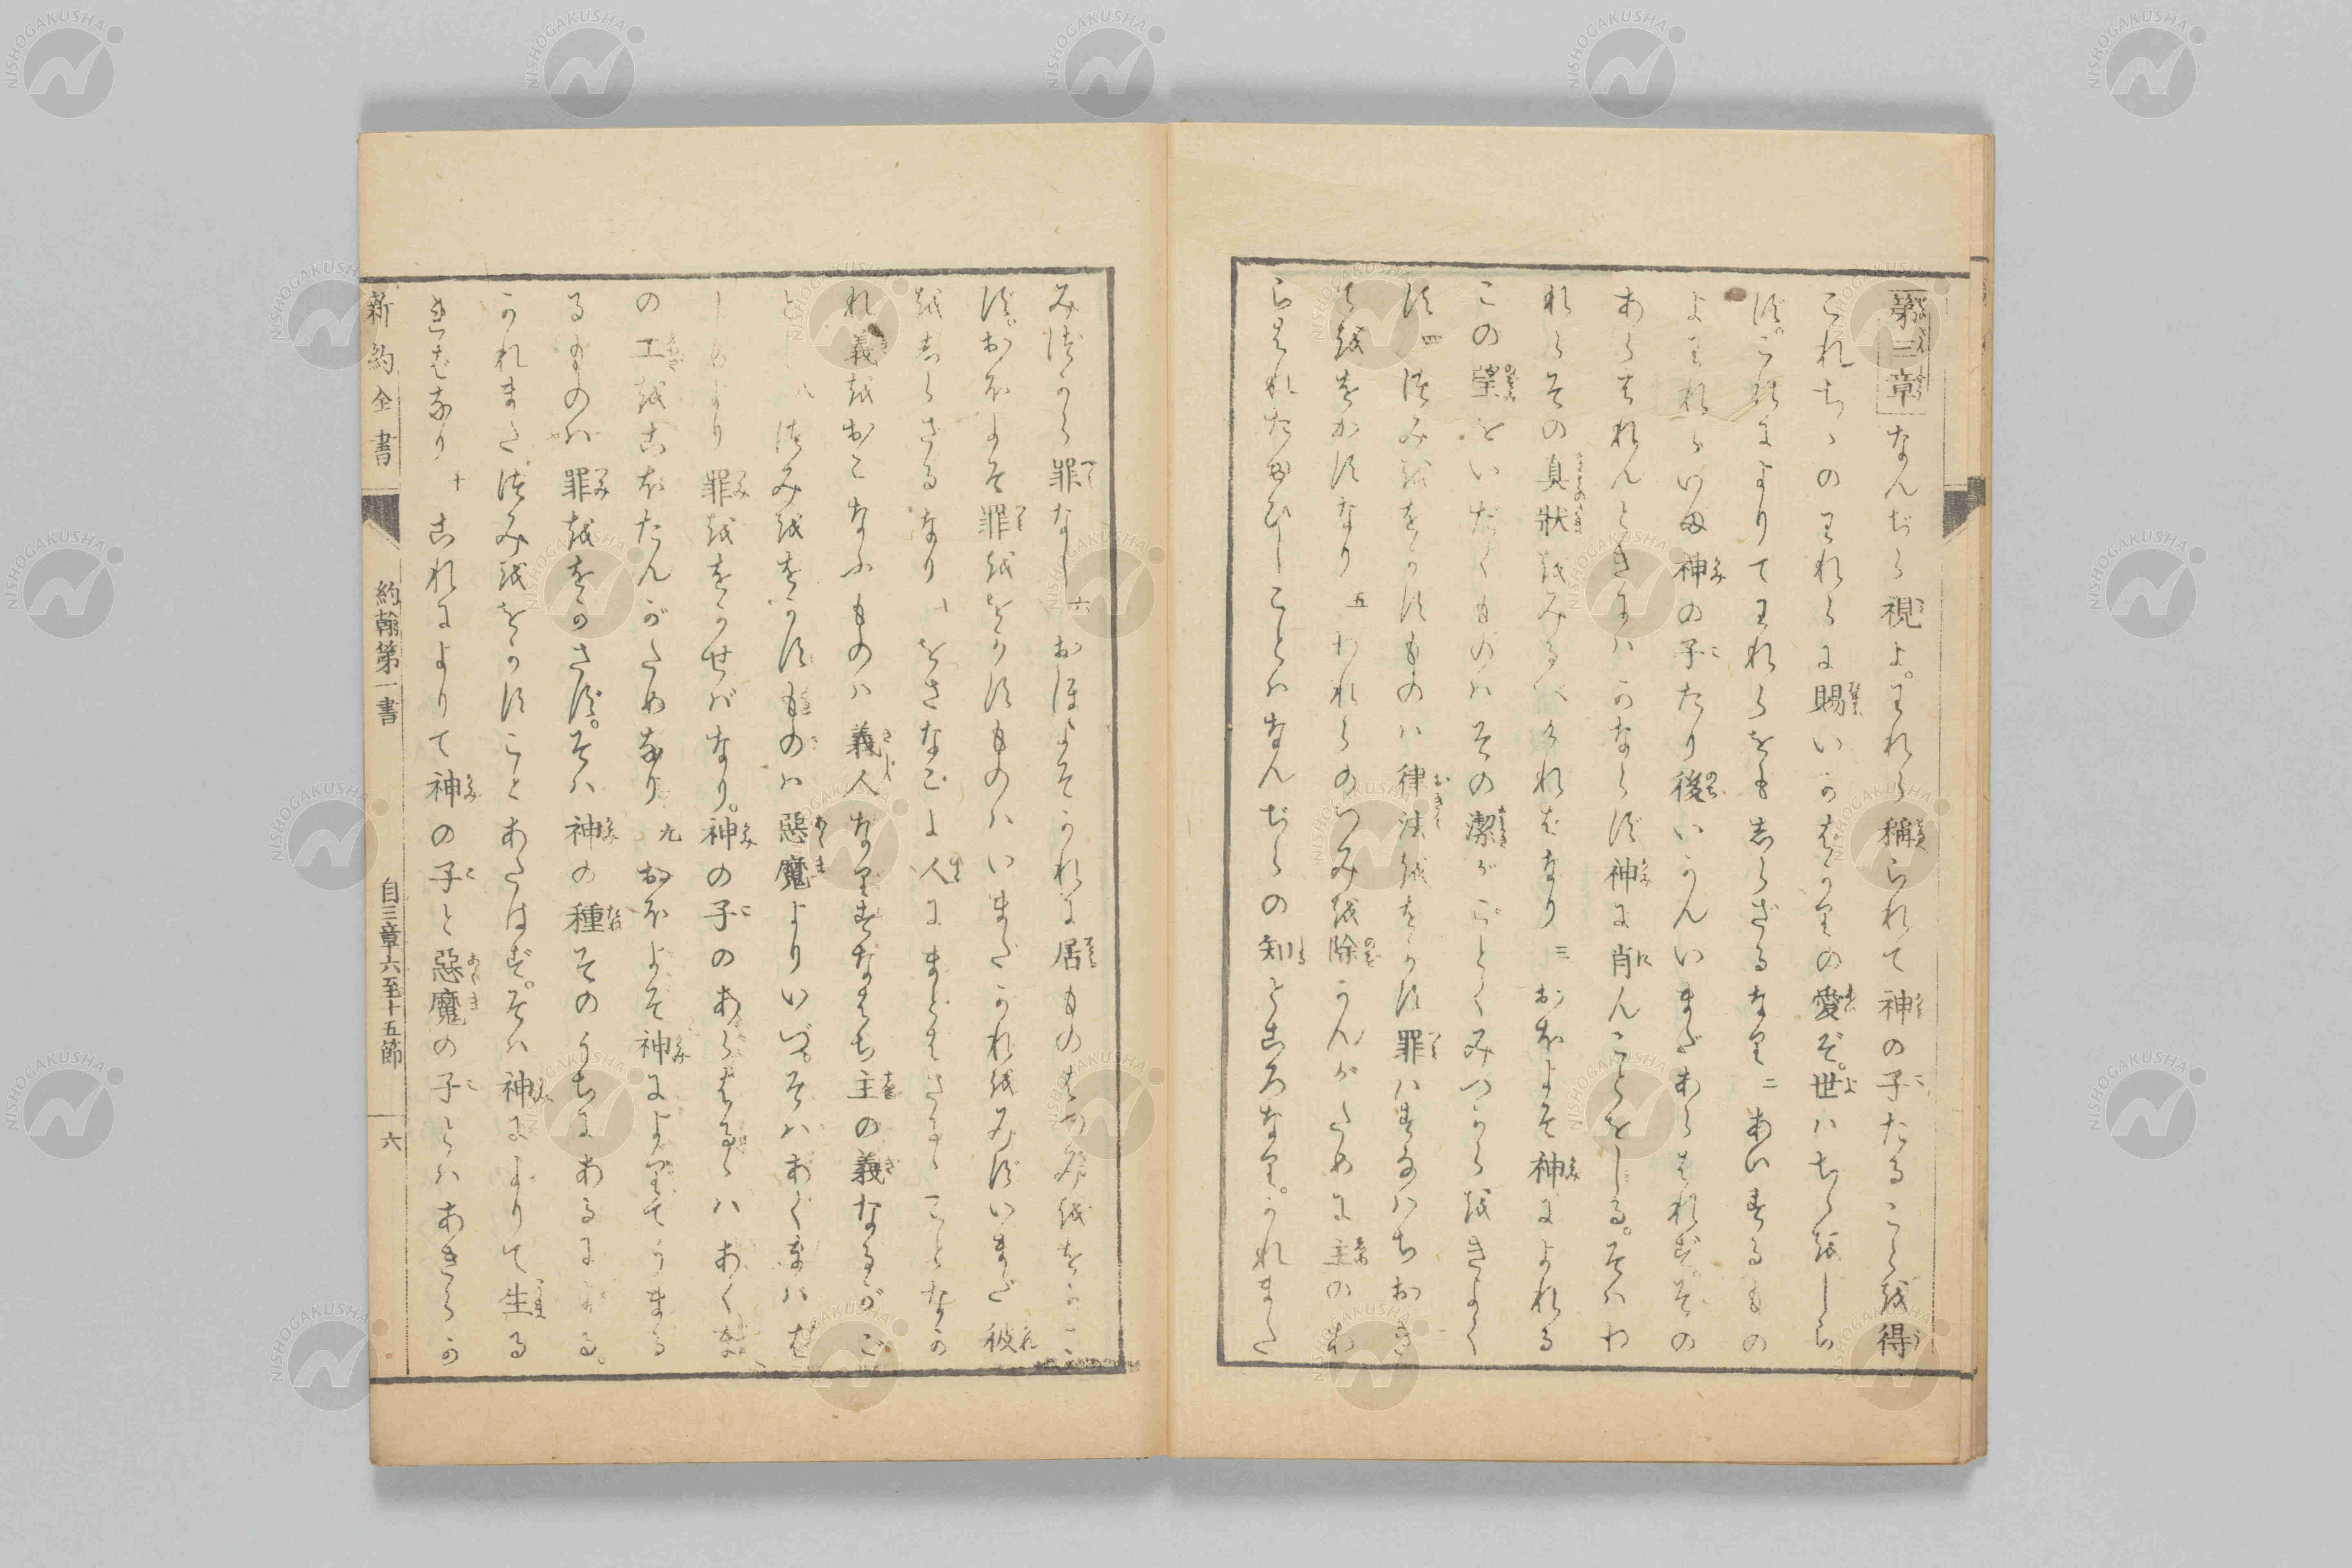 第三章 なんぢら視よ。われら稱られて神の子たること越得
これちゝのわれらに賜いかばかりの愛ぞ。世ハちゝ越しら
ず。これによりてわれらをも志らざるなり 二 あいするもの
よわれらいま神の子たり後いかんいまだあらはれず。その
あらはれんときにハかならず神に肖んことをしる。そハわ
れらその真狀越みるべければなり 三 おおよそ神によれる
この望をいだくものハその潔がごとくみづから越きよく
す 四 つみ越をかすものハ律法越をかす罪ハすなハちおき
て越をかすなり 五 われらのつみ越除かんがために主のあ
らはれたまひしことハなんぢらの知ところなり。かれまた
みづから罪なし 六 おほよそかれに居ものはつみ越をかさ
ず。おおよそ罪越をかすものハいまだかれ越みずいまだ彼
越志らざるなり 七 をさなごよ人にまどはさるゝことなか
れ義越おこなふものハ義人なりすなはち主の義なるがご
とし 八 つみ越をかすものハ惡魔よりいづ。そハあくまハは
じめより罪越をかせバなり。神の子のあらはるゝハあくま
の工越こぼたんがためなり 九 おおよそ神によりてうまる
るものハ罪越をかさず。そハ神の種そのうちにあるによる。
かれまたつみ越をかすことあたはず。そハ神によりて生る
ればなり 十 これによりて神の子と惡魔の子らハあきらか
新約全書 約翰第一書 自三章六至十五節 六